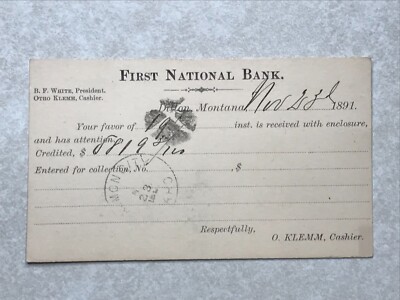 FIRST NATIONAL BANK.
B. F. WHITE, President.
OTHO KLEMM, Cashier.
Dillon, Montana, Nov 23d 1891.
Your favor of inst. is received with enclosure,
and has attention.
Credited, $
Entered for collection, No. $
Respectfully,
O. KLEMM, Cashier.